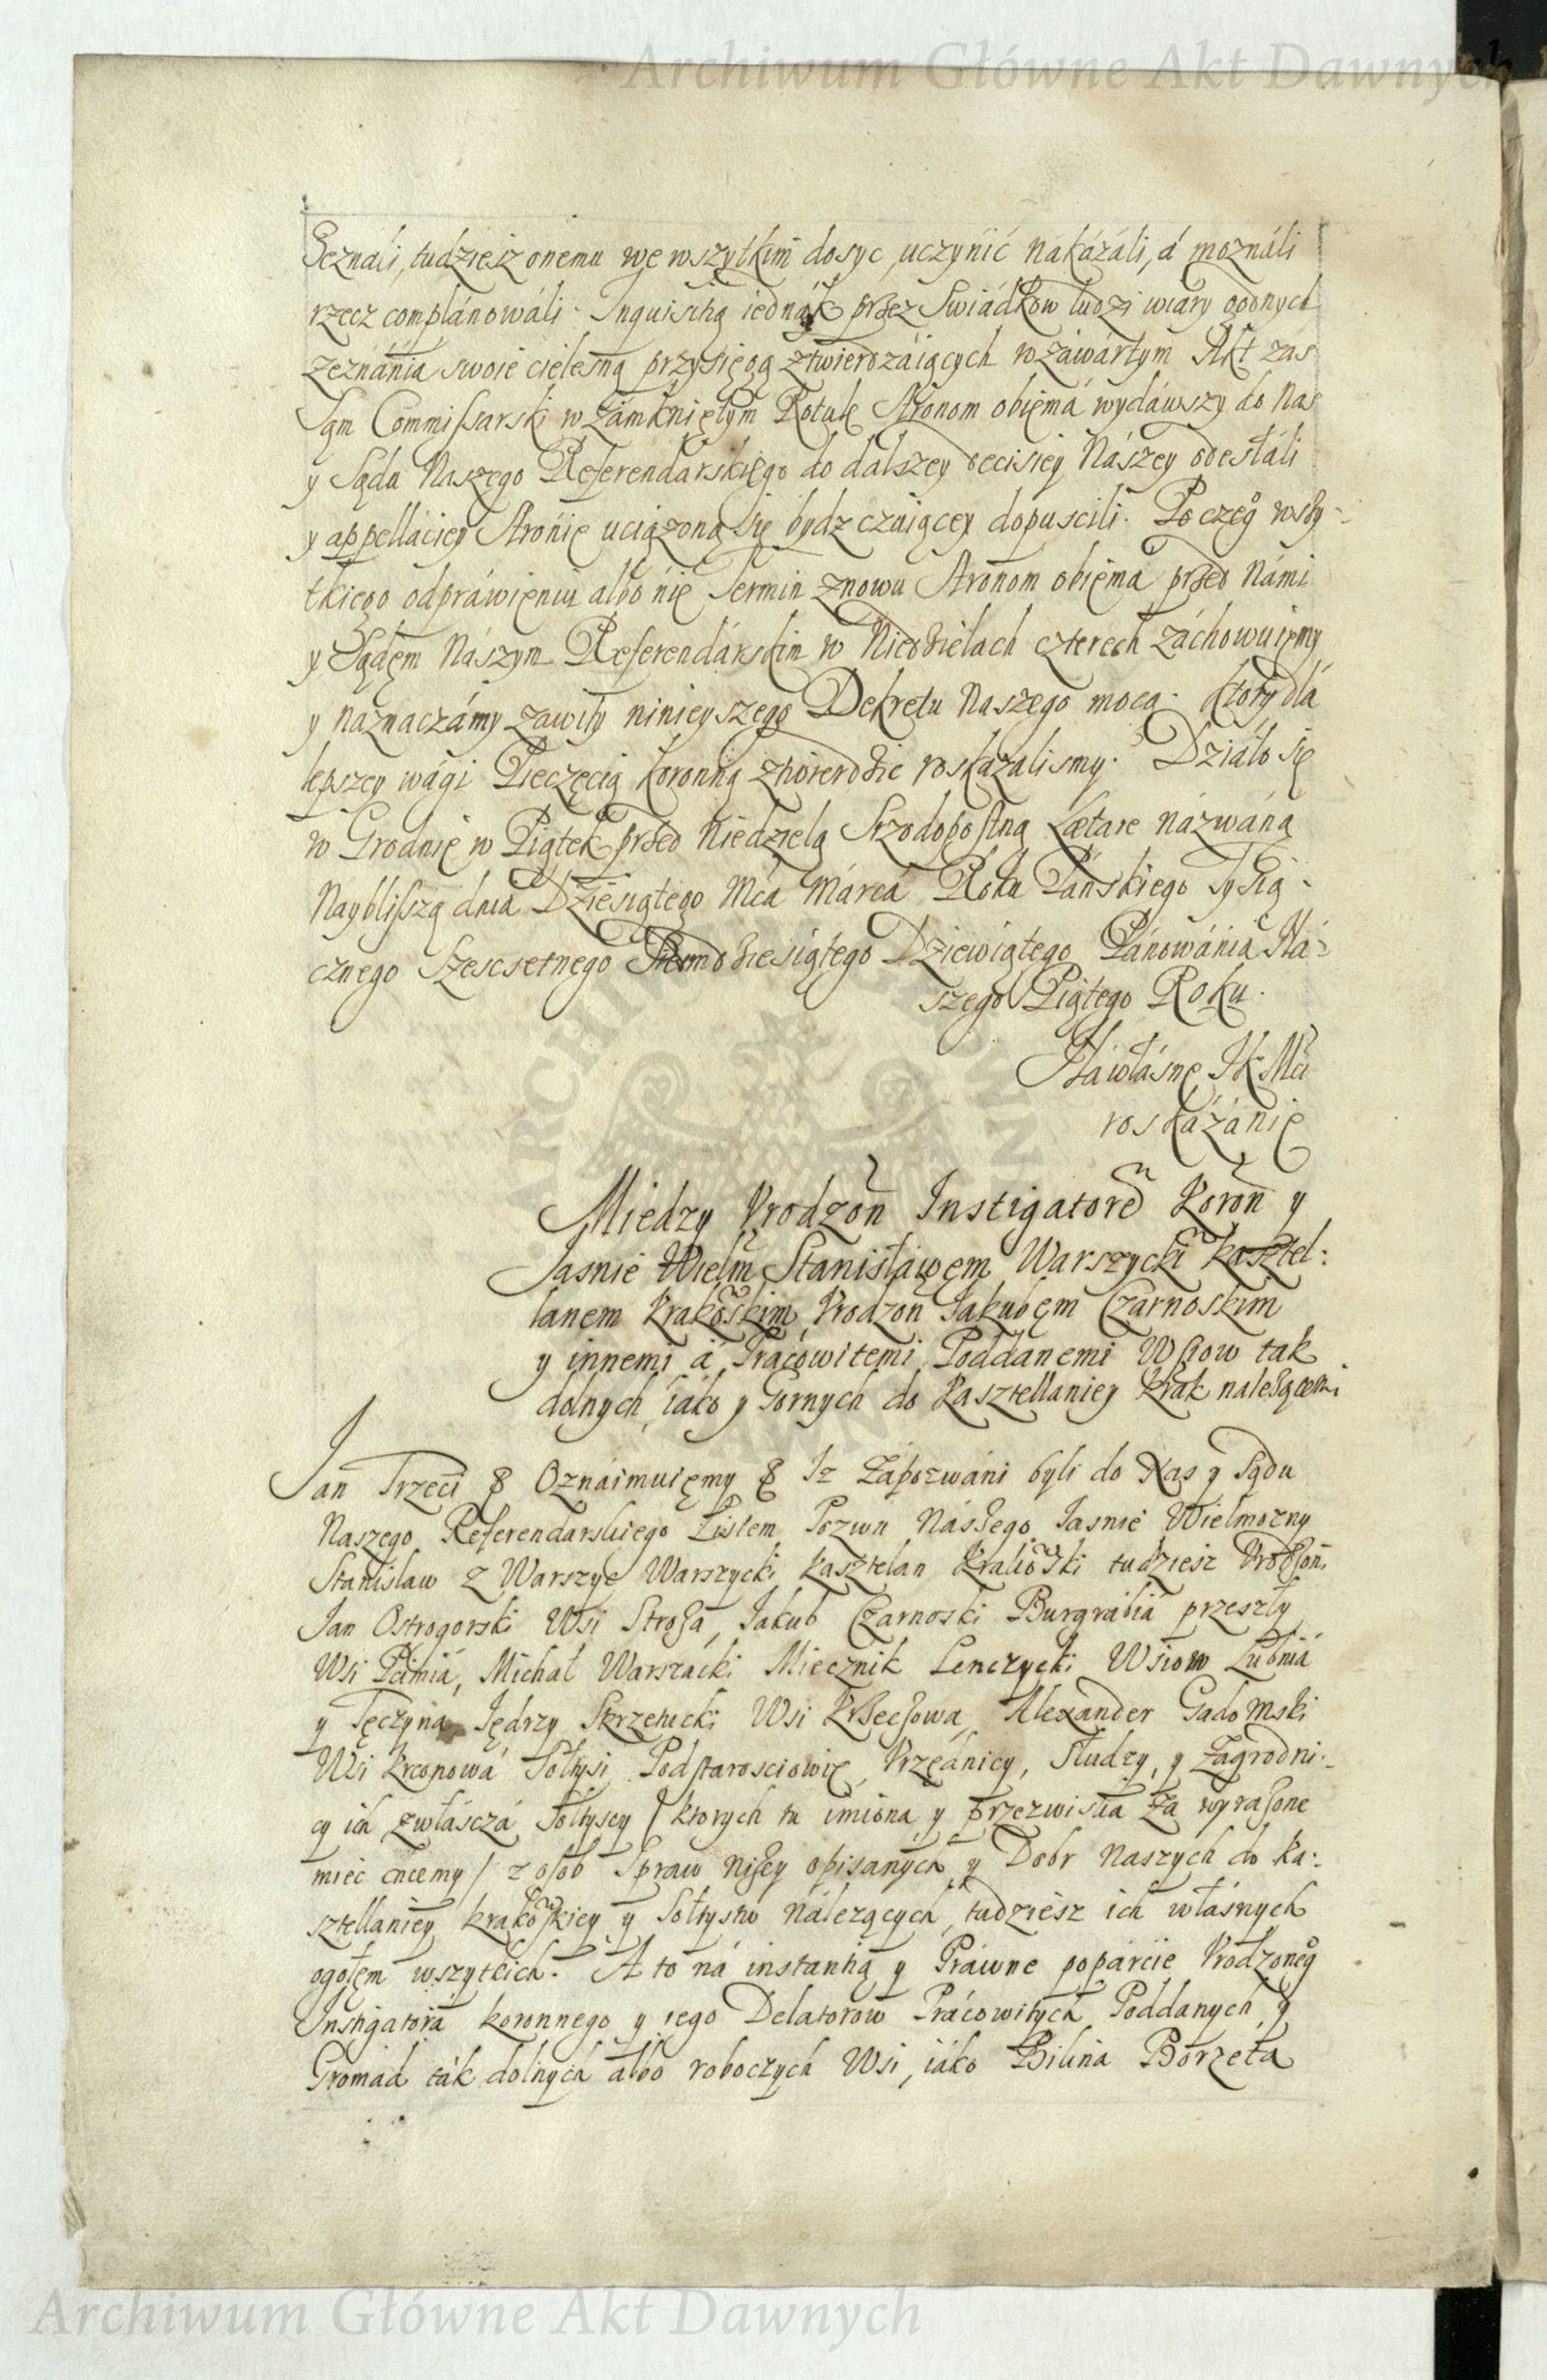 Archiwum Główne Akt Dawnych
Zeznali, tudziesz onemu we wszytkim dosyc uczynić nakázáli, á moználi
rzecz complánowáli. Inquisitią iednák przez Swiádkow ludzi wiary godnych
zeznánia swoie cielesną przysięgą ztwierdzáiących w záwártym Akt zás
sąm Commissarski w zámknięlym Rotule stronom obięmá wydáwszy do Nas
y Sądu Naszego Referendarskięgo do dalszey decisiey Nászey odesłáli
y appellaciey stronie uciązoną się bydz czuiącey dopuscili. Po czeg wszy-
tkiego odpráwięniu albo nie termin znowu stronom obięma przed Námi
y Sądęm Nászym Referendárskim w Niedzielach czterech záchowuięmy
y naznaczámy zawity ninieyszego Dekretu Naszego mocą. Ktory dlá
lepszey wági Pieczęcią koronną ztwierdzic roskazalismy. Dziáło się
w Grodnie w Piątek przed Niedzielą Srzodopostną Lætare názwáną
Nayblisszą dnia Dziesiątego Mca Márca Roku Páńskiego Tysią-
cznego szescsetnego Siedmdziesiątego Dziewiątego Pánowánia Ná-
szego Piątego Roku.
Ná własne JK Mći
roskázánie
Miedzy Vrodzon Instigatore Koron y
Jasnie Wielm Stanisławęm Warszycki Kasztel:
lanem Krakoskim, Vrodzon Jakubęm Czarnoskim
y innemi á Prácowitemi Poddanemi Wsiow tak
dolnych iáko y Gornych do Kasztellaniey Krak nalezącemi
Jan Trzeci & Oznáimuięmy & Iz Zápozwáni byli do Nas y Sądu
Naszego Referendarskiego Listem Pozwu Nászego Jasnie Wielmozny
Stanislaw z Warszyc Warszycki Kasztelan Krakowski tudziesz Vrodzoń.
Jan Ostrogorski Wsi Stroza, Jakub Czarnoski Burgrábia przeszły
Wsi Pcimiá, Michał Warszácki Miecznik Lenczycki Wsiow Lubniá
y Tęczyná Jędrzy Skrzetucki Wsi Krzeczowa, Alexander Gadomski
Wsi Krconowá Sołtysi Podstarosciowie, Vrzędnicy, Słudzy, y Zagrodni-
cy ich zwłászczá Sołtyscy / ktorych tu imiona y przezwiska za wyrazone
mieć chcemy / z osob Spraw nizey opisanych y Dobr Naszych do Ka-
sztellaniey krakowskiey y Sołtystw nálezących, tudziesz ich włásnych
ogołęm wszytkich. A to ná instantią y Práwne popárcie Vrodzoneg
Instigatorá koronnego y iego Delatorow Prácowitych Poddanych y
Gromád ták dolnych álbo roboczych Wsi, iáko Bilina Borzetá
Archiwum Główne Akt Dawnych